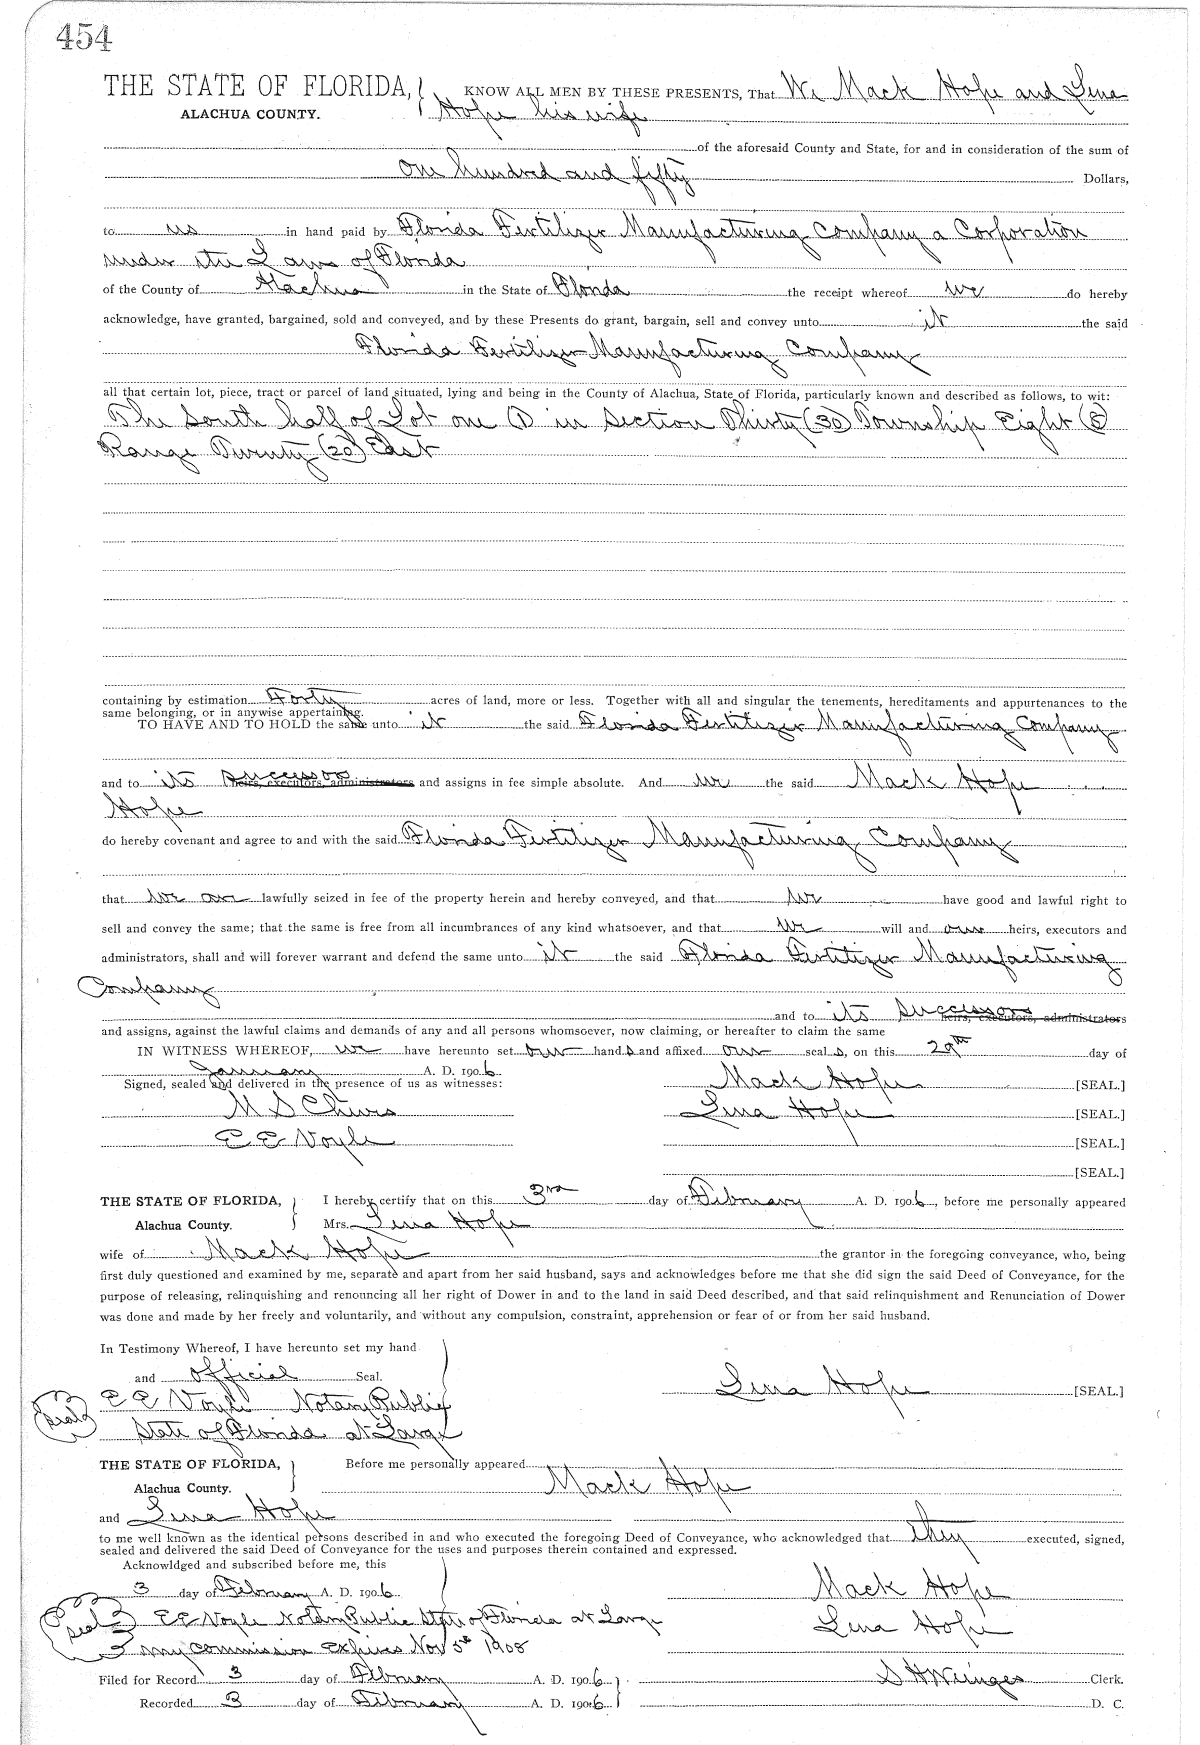 454
THE STATE OF FLORIDA, KNOW ALL MEN BY THESE PRESENTS, That We Mack Hope and Lena
ALACHUA COUNTY. Hope his wife
of the aforesaid County and State, for and in consideration of the sum of
One hundred and fifty Dollars,
to us in hand paid by Florida Fertilizer Manufacturing Company a Corporation
under the Laws of Florida
of the County of Alachua in the State of Florida the receipt whereof we do hereby
acknowledge, have granted, bargained, sold and conveyed, and by these Presents do grant, bargain, sell and convey unto it the said
Florida Fertilizer Manufacturing Company
all that certain lot, piece, tract or parcel of land situated, lying and being in the County of Alachua, State of Florida, particularly known and described as follows, to wit:
The South half of Lot one (1) in Section Thirty (30) Township Eight (8)
Range Twenty (20) East
containing by estimation Forty acres of land, more or less. Together with all and singular the tenements, hereditaments and appurtenances to the
same belonging, or in anywise appertaining.
TO HAVE AND TO HOLD the same unto it the said Florida Fertilizer Manufacturing Company
and to its successors heirs, executors, administrators and assigns in fee simple absolute. And we the said Mack Hope
Hope
do hereby covenant and agree to and with the said Florida Fertilizer Manufacturing Company
that we are lawfully seized in fee of the property herein and hereby conveyed, and that we have good and lawful right to
sell and convey the same; that the same is free from all incumbrances of any kind whatsoever, and that we will and our heirs, executors and
administrators, shall and will forever warrant and defend the same unto it the said Florida Fertilizer Manufacturing
Company
and to its successors heirs, executors, administrators
and assigns, against the lawful claims and demands of any and all persons whomsoever, now claiming, or hereafter to claim the same
IN WITNESS WHEREOF, we have hereunto set our hands and affixed our seals, on this 29th day of
January A. D. 1906
Signed, sealed and delivered in the presence of us as witnesses: Mack Hope [SEAL.]
M S Lena Hope [SEAL.]
E E Voyle [SEAL.]
[SEAL.]
THE STATE OF FLORIDA, I hereby certify that on this 3rd day of February A. D. 1906, before me personally appeared
Alachua County. Mrs. Lena Hope
wife of Mack Hope the grantor in the foregoing conveyance, who, being
first duly questioned and examined by me, separate and apart from her said husband, says and acknowledges before me that she did sign the said Deed of Conveyance, for the
purpose of releasing, relinquishing and renouncing all her right of Dower in and to the land in said Deed described, and that said relinquishment and Renunciation of Dower
was done and made by her freely and voluntarily, and without any compulsion, constraint, apprehension or fear of or from her said husband.
In Testimony Whereof, I have hereunto set my hand
and official Seal. Lena Hope [SEAL.]
seal E E Voyle Notary Public
State of Florida at Large
THE STATE OF FLORIDA, Before me personally appeared
Alachua County. Mack Hope
and Lena Hope
to me well known as the identical persons described in and who executed the foregoing Deed of Conveyance, who acknowledged that they executed, signed,
sealed and delivered the said Deed of Conveyance for the uses and purposes therein contained and expressed.
Acknowldged and subscribed before me, this
3 day of February A. D. 1906 Mack Hope
seal E E Voyle Notary Public State of Florida at Large Lena Hope
My commission expires Nov 5th 1908
Filed for Record 3 day of February A. D. 1906 S H Wienges Clerk.
Recorded 3 day of February A. D. 1906 D. C.